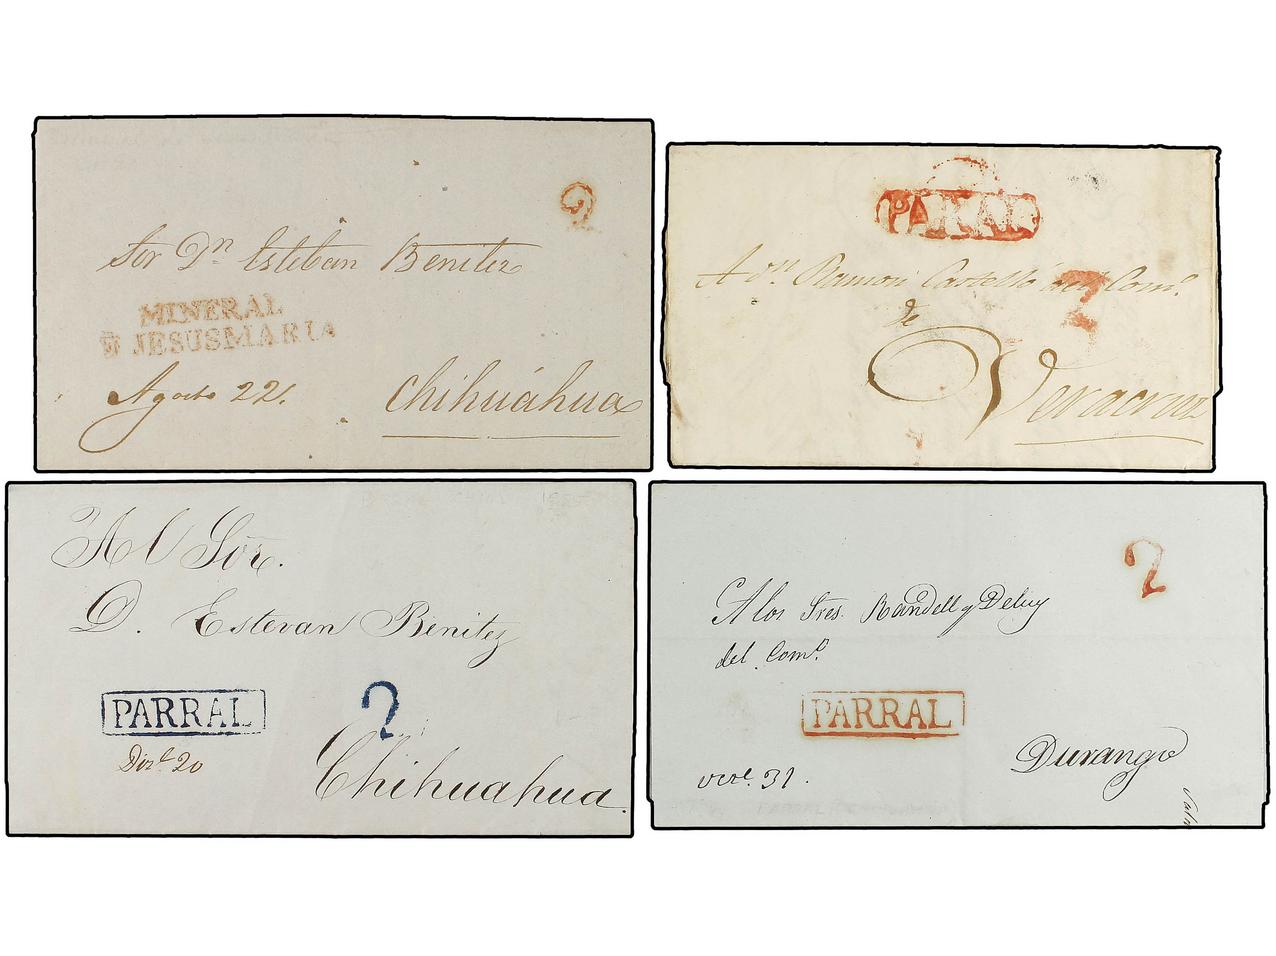 Sor Dn Esteban Benitez
MINERAL
D JESUSMARIA
Agosto 22.
Chihuáhua
PARRAL
2
A dn. Ramon Castelló del Como.
de
Veracruz
Al Sor.
D. Estevan Benitez
PARRAL
2
Dize. 20
Chihuahua.
2
A los Sres. Randell y Deluy
del Como.
PARRAL
Durango
31.